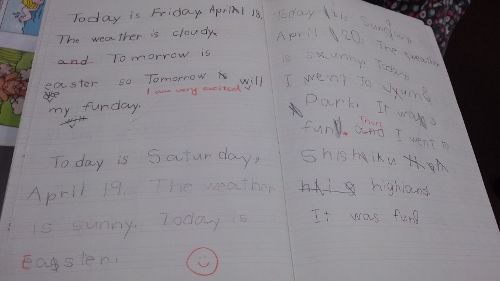 Today is Friday, April 18.
The weather is cloudy.
and Tomorrow is
easter so Tomorrow will
I am very excited
my funday.
Today is Saturday,
April 19. The weather
is sunny. Today is
Easter.
Today is Sunday
April 20. The weather
is sunny. Today
I went to
Park. It was
fun. Then I went to
highland
It was fun